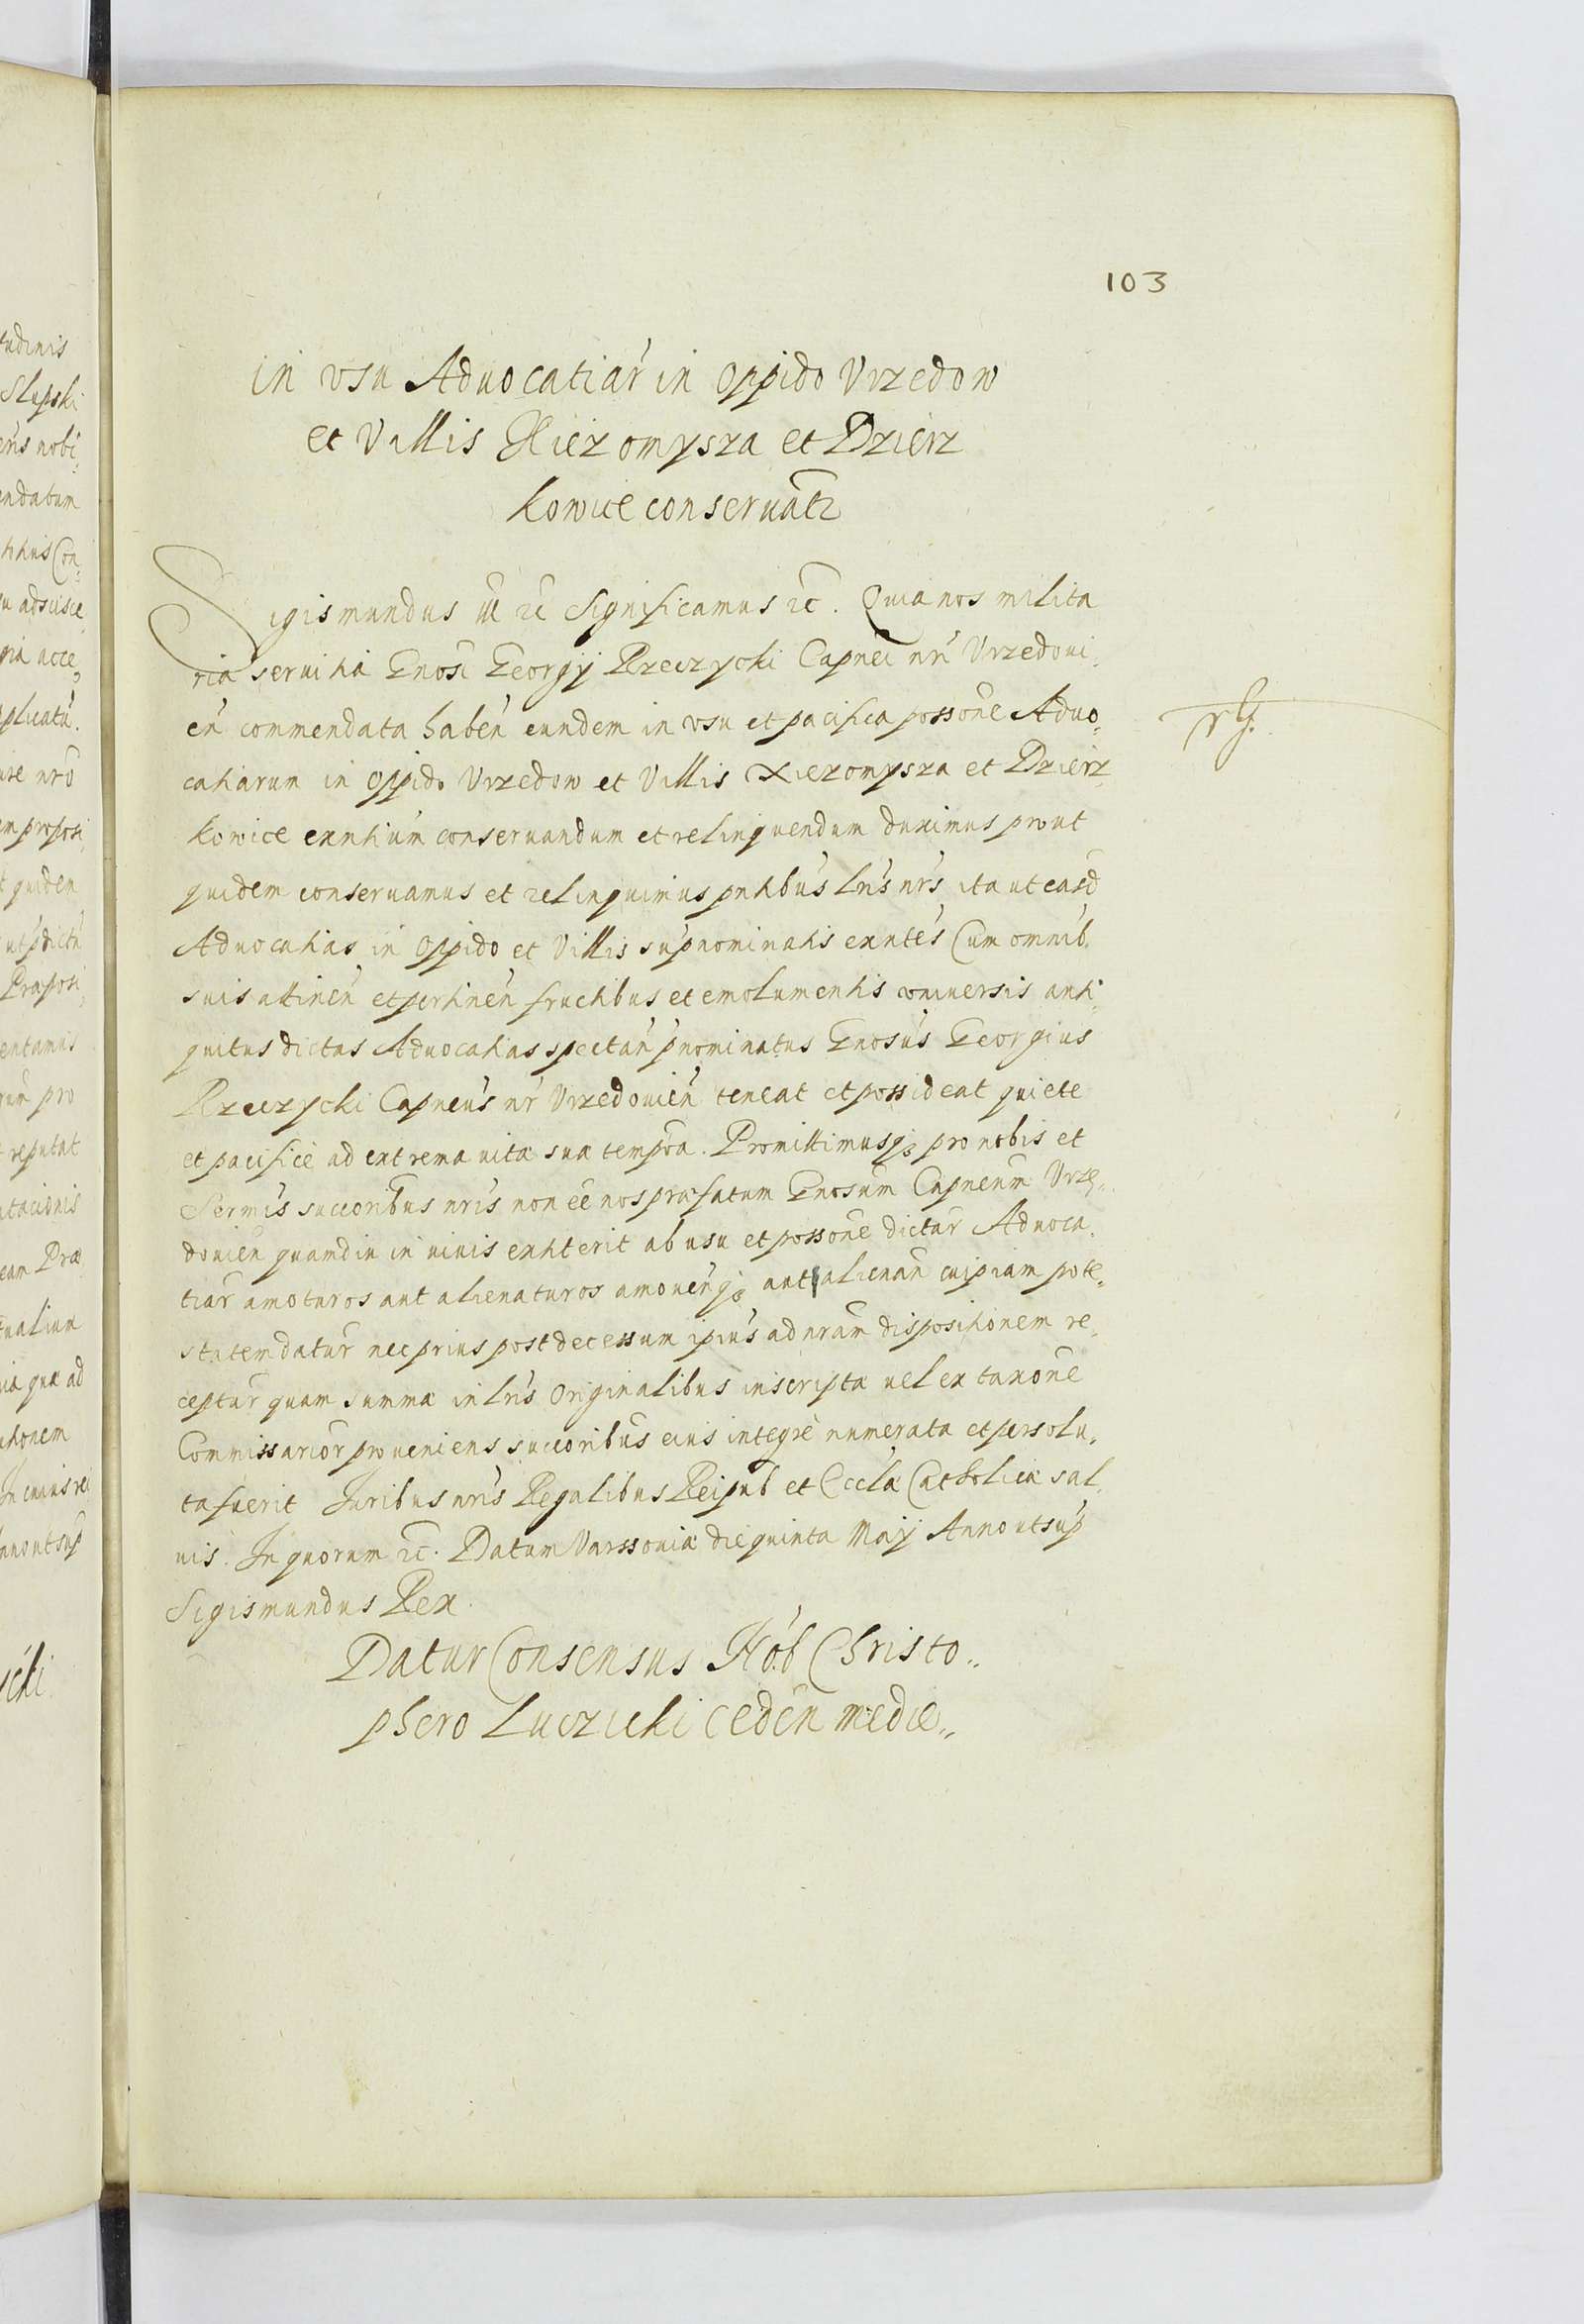 103
in usu Aduocatiar in oppido Vrzedow
et Villis Xiezomysza et Dzierz
kowice conseruatr
Sigismundus III rc Significamus rc. Quia nos milita
ria seruitia Gnosi Georgij Rzeczycki Capnei nri Vrzedoui,
en commendata haben eundem in usu et pacifica possone Aduo,
catiarum in oppido Vrzedow et Villis Xiezomysza et Dzierz
kowice exntium conseruandum et relinquendum duximus prout
quidem conseruamus et relinquimus pntibus lris nris ita ut easd
Aduocatias in oppido et Villis supnominatis exntes Cum omnib.
suis attinen et pertinen fructibus et emolumentis vniuersis anti,
quitus dictas Aduocatias spectan pnominatus Gnosus Georgius
Rzeczycki Capneus nr Vrzedouien teneat et possideat quiete
et pacifice ad extrema uitæ suæ tempora. Promittimusq; pro nobis et
Sermis succoribus nris non ee nos præfatum Gnosum Capneum Vrze,
douien quamdiu in uiuis extiterit ab usu et possone dictar Aduoca,
tiar amoturos aut alienaturos amouenq; aut alienan cuipiam pote,
statem datur nec prius post decessum ipius ad nram dispositionem re,
ceptur quam summa in lris Originalibus inscripta uel ex taxone
Commissarior proueniens succoribus eius integre numerata et persolu,
ta fuerit Juribus nris Regalibus Reipub et Eccla Catholicæ sal,
uis. In quorum rc. Datum Varssouiæ die quinta Maij Anno ut sup
Sigismundus Rex.
Datur Consensus Nob Christo,,
phero Luczicki ceden medie,,